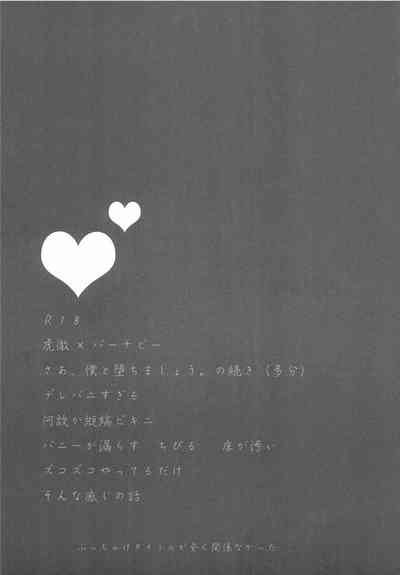 R18
虎徹×バーナビー
さあ、僕と堕ちましょう。の続き（多分）
デレバニすぎる
何故か短編ビキニ
バニーが漏らす ちびる 床が汚い
ズコズコやってるだけ
そんな癒しの話
ぶっちゃけタイトルが全く関係なかった